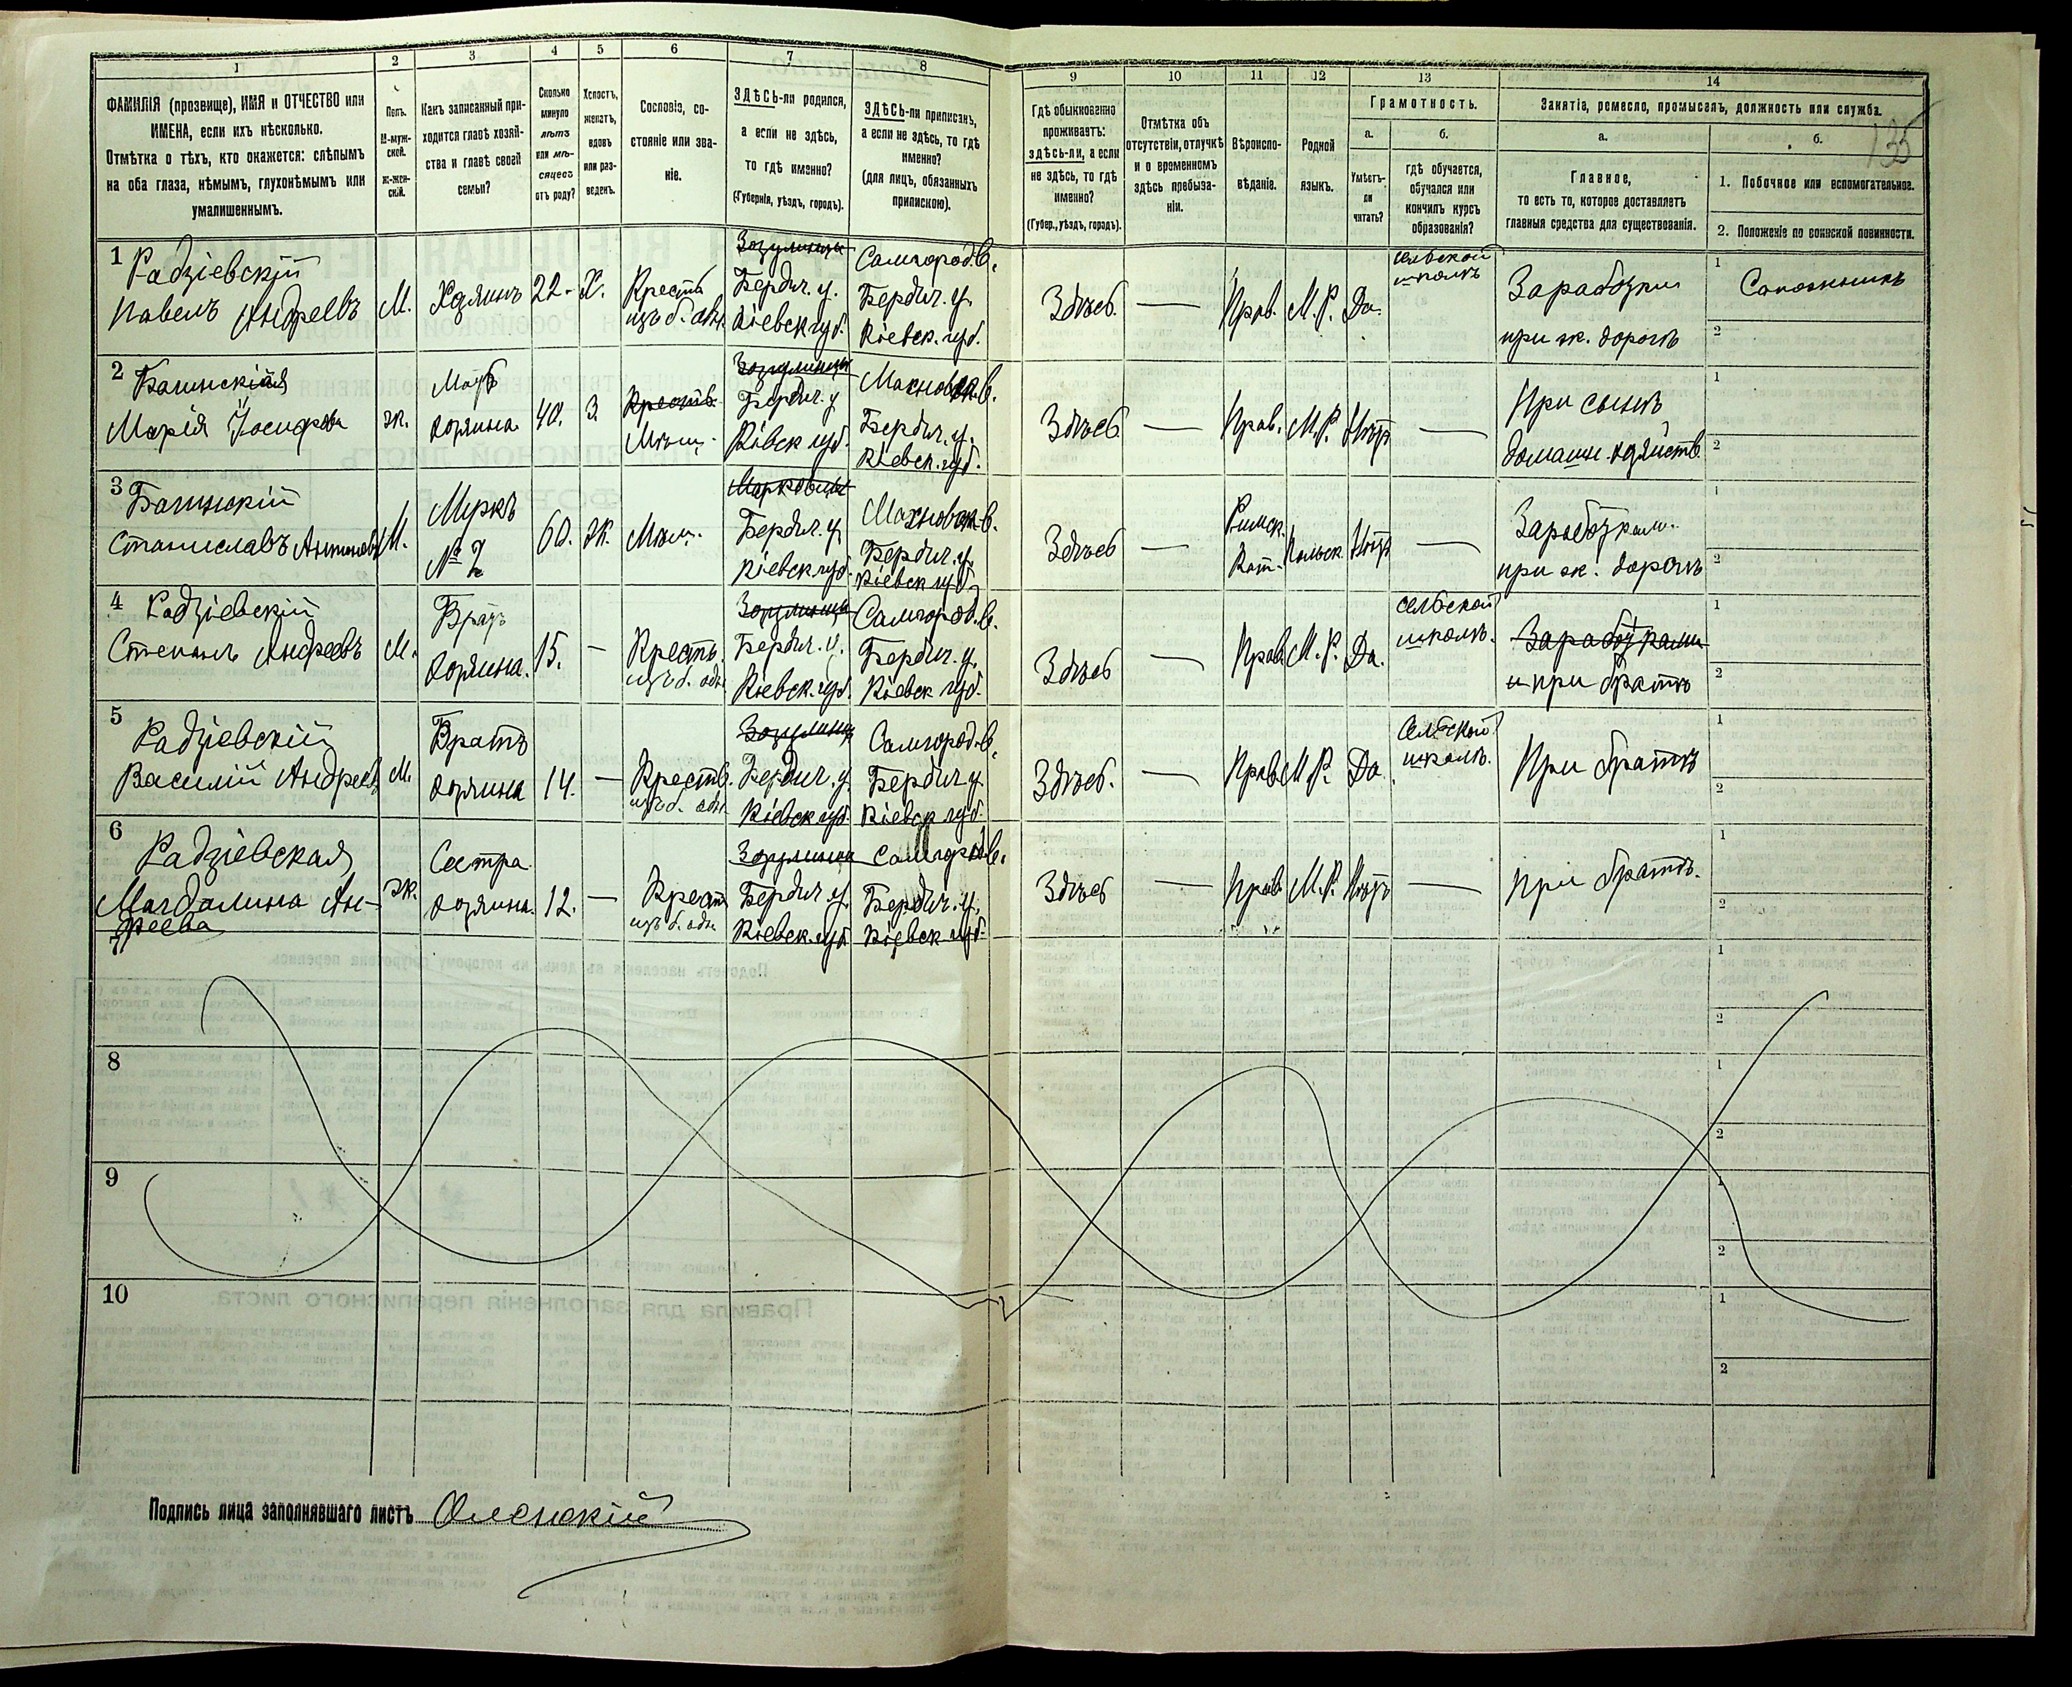 1 2 3 4 5 6 7 8 9 10 11 12 13 14
ФАМИЛІЯ (прозвище), ИМЯ и ОТЧЕСТВО или
ИМЕНА, если ихъ нѣсколько.
Отмѣтка о тѣхъ, кто окажется: слѣпымъ
на оба глаза, нѣмымъ, глухонѣмымъ или
умалишеннымъ.
Полъ.
М-муж-
ской.
ж-жен-
скій.
Какъ записанный при-
ходится главѣ хозяй-
ства и главѣ своей
семьи?
Сколько
минуло
лѣтъ
или мѣ-
сяцевъ
отъ роду?
Холостъ,
женатъ,
вдовъ
или раз-
веденъ.
Сословіе, со-
стояніе или зва-
ніе.
ЗДѢСЬ-ли родился,
а если не здѣсь,
то гдѣ именно?
(Губернія, уѣздъ, городъ).
ЗДѢСЬ-ли приписанъ,
а если не здѣсь, то гдѣ
именно?
(для лицъ, обязанныхъ
припискою).
Гдѣ обыкновенно
проживаетъ:
здѣсь-ли, а если
не здѣсь, то гдѣ
именно?
(Губер., уѣздъ, городъ).
Отмѣтка объ
отсутствіи, отлучкѣ
и о временномъ
здѣсь пребыва-
ніи.
Вѣроиспо-
вѣданіе.
Родной
языкъ.
Грамотность.
а.
Умѣетъ-
ли
читать?
б.
гдѣ обучается,
обучался или
кончилъ курсъ
образованія?
Занятіе, ремесло, промыселъ, должность или служба.
а.
Главное,
то есть то, которое доставляетъ
главныя средства для существованія.
б.
135
1. Побочное или вспомогательное.
2. Положеніе по воинской повинности.
1 Радзіевскій
Павелъ Андреевъ
М.
Хозяинъ
22.
Х.
Крестъ
изъ б. одн.
Зозулинцы
Бердич. у.
Кіевск губ.
Самгород. в.
Бердич. у.
Кіевск. губ.
Здѣсь.
—
Прав.
М. Р.
Да.
сельской
школѣ
Заработки
при ж. дорогѣ
1 Сапожникъ
2
2
Марія Іосифова
ж.
Мать
хозяина
40.
З.
Крестъ.
Мѣщ.
Зозулинцы
Бердич. у
Кіевск губ.
Махновск. в.
Бердич. у.
Кіевск. губ.
Здѣсь.
—
Прав.
М. Р.
Нѣтъ
—
При сынѣ
домашн. хозяйств.
1
2
3
Станиславъ Антоновъ
М.
Мужъ
№ 2
60.
ж.
Мѣщ.
Бердич. у
Кіевск губ.
Махновск в.
Бердич. у.
Кіевск губ.
Здѣсь
—
Римск.
Кат.
Польск.
Нѣтъ
—
Заработками
при ж. дорогѣ
1
2
4 Радзіевскій
Степанъ Андреевъ
М.
Братъ
хозяина.
15.
—
Крестъ.
изъ б. одн.
Зозулинцы
Бердич. у.
Кіевск. губ.
Самгород. в.
Бердич. у.
Кіевск губ.
Здѣсь
—
Прав.
М. Р.
Да.
сельской
школѣ.
Заработками
и при братѣ
1
2
5 Радзіевскій
Василій Андреевъ
М.
Братъ
хозяина
14.
—
Крестъ.
изъ б. одн.
Зозулинцы
Бердич. у.
Кіевск губ.
Самгород. в.
Бердич. у.
Кіевск губ.
Здѣсь.
—
Прав.
М. Р.
Да.
Сельской
школѣ.
При братѣ
1
2
6 Радзіевская
Магдалина Ан-
дреева
ж.
Сестра
хозяина.
12.
—
Крест
изъ б. одн.
Зозулинцы
Бердич. у.
Кіевск. губ.
Самгород. в.
Бердич. у.
Кіевск губ.
Здѣсь
—
Прав.
М. Р.
Нѣтъ
—
При братѣ.
1
2
1
2
8
1
2
9
1
2
10
1
2
Подпись лица заполнявшаго листъ